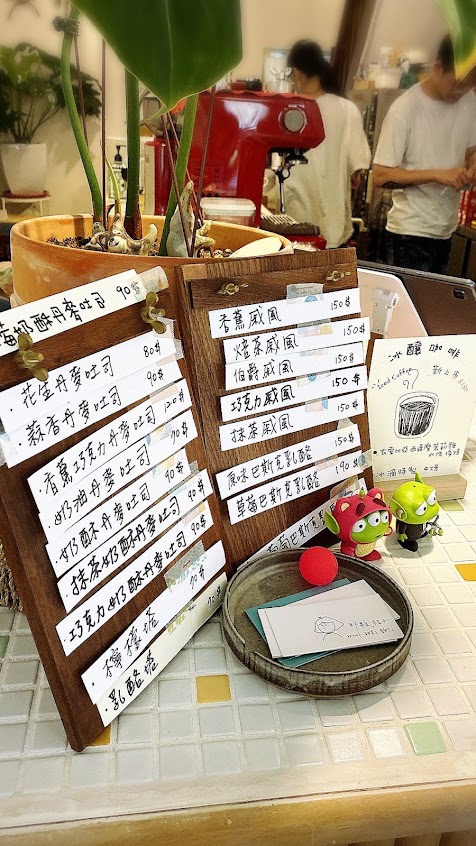 莓奶酥丹麥吐司 90$
・花生丹麥吐司 80$
・蒜香丹麥吐司 90$
・香蕉巧克力丹麥吐司 120$
・奶油丹麥吐司 70$
・奶酥丹麥吐司 90$
・抹茶奶酥丹麥吐司 90$
・巧克力奶酥丹麥吐司 90$
・檸檬塔 90$
・乳酪塔 70$
香蕉戚風 150$
焙茶戚風 150$
伯爵戚風 150$
巧克力戚風 150$
抹茶戚風 150$
原味巴斯克乳酪 150$
草莓巴斯克乳酪 190$
葡萄巴斯克
冰釀咖啡
Iced Coffee
新上市
・冰滴特製